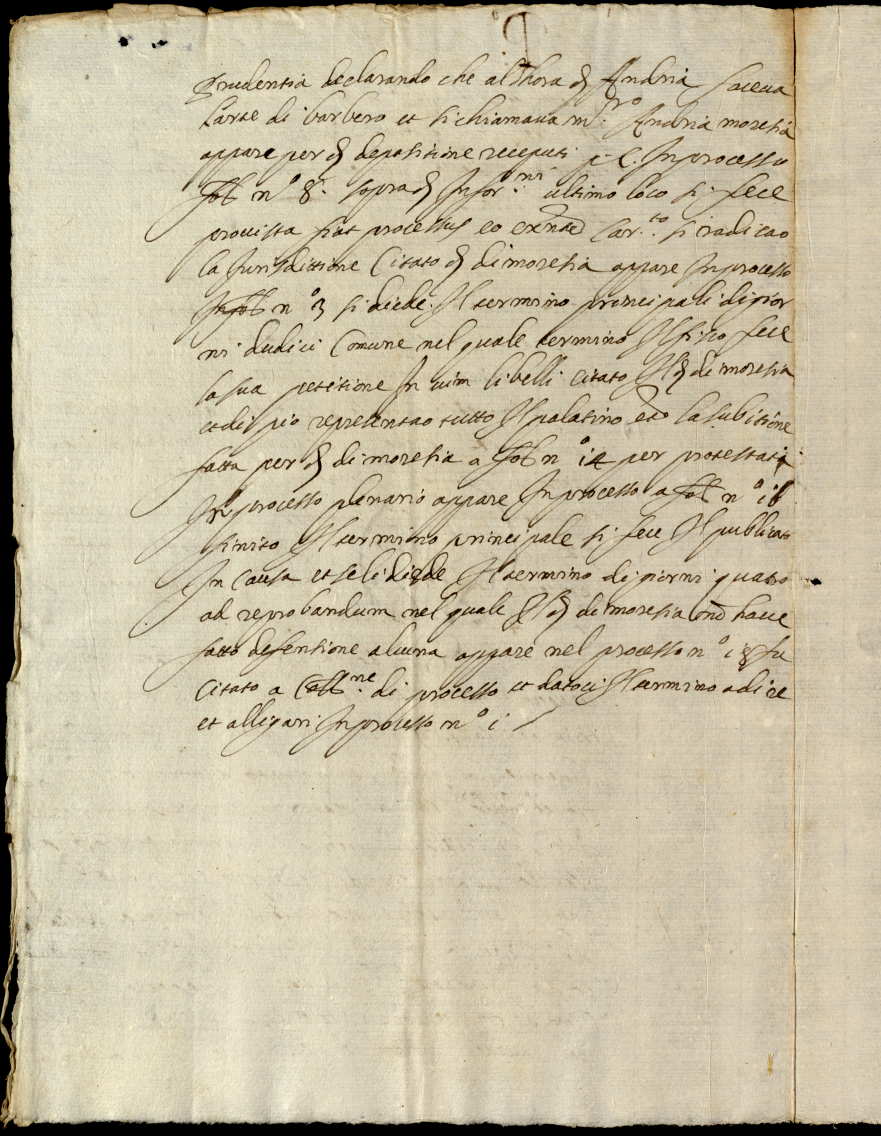 Prudentia declarando che al'hora d. Andria faceva
l'arte di barbero et si chiamava m.ro Andria moresia
appare per d. depositione receputi p. C. In processu
fol. n.o 8. sopra d. Infor.ni ultimo loco si fece
provista fiat processus eo carcerato si radicao
la Jurisdittione Citato d. di moresia appare In processo
fol. n.o 3 si diede. Il termino principali di gior
ni dudici Comune nel quale termino Il fisco fece
la sua petitione In vim libelli citato Il d. di moresia
et di più representao tutto Il palatino et la subitione
fatta per d. di moresia a fol. n.o 14 per protestati
In processo plenario appare In processo a fol. n.o 16
finito Il termino principale si fece Il publicato
In Causa et seli diede Il termino di giorni quatro
ad reprobandum nel quale Il d. di moresia non have
fatto defentione alcuna appare nel processo n.o 18 fu
Citato a Coll.ne di processo et datoci Il termino a dire
et alligari In processo n.o i